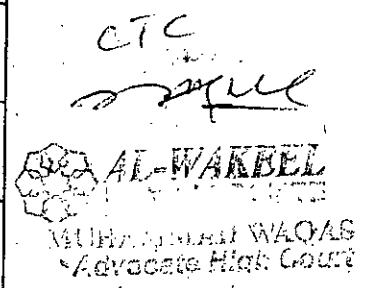 CTC
AL-WAKEEL
MUHAMMAD WAQAS
Advocate High Court